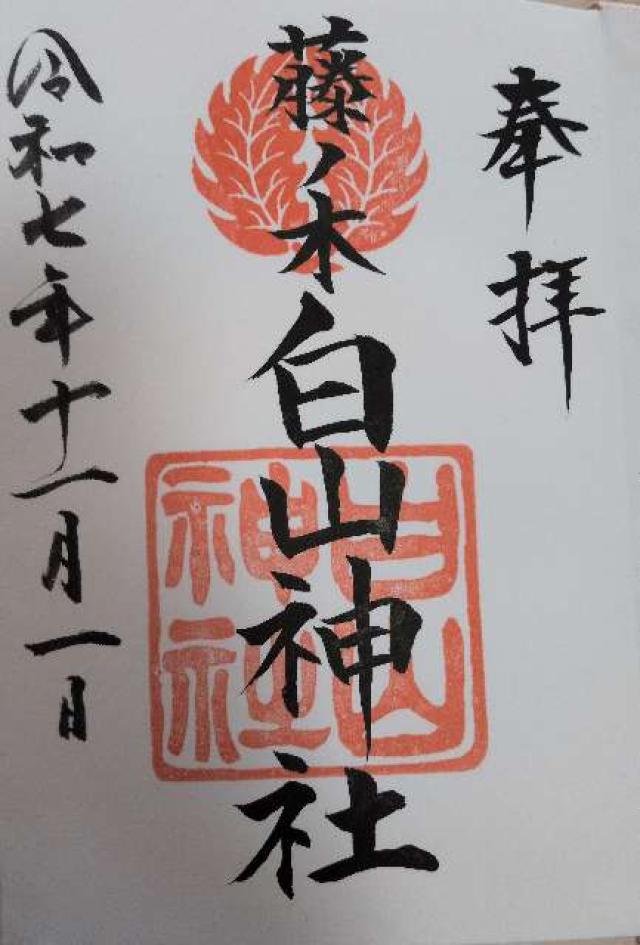 奉拝
藤ノ木白山神社
白山神社
令和七年十一月一日